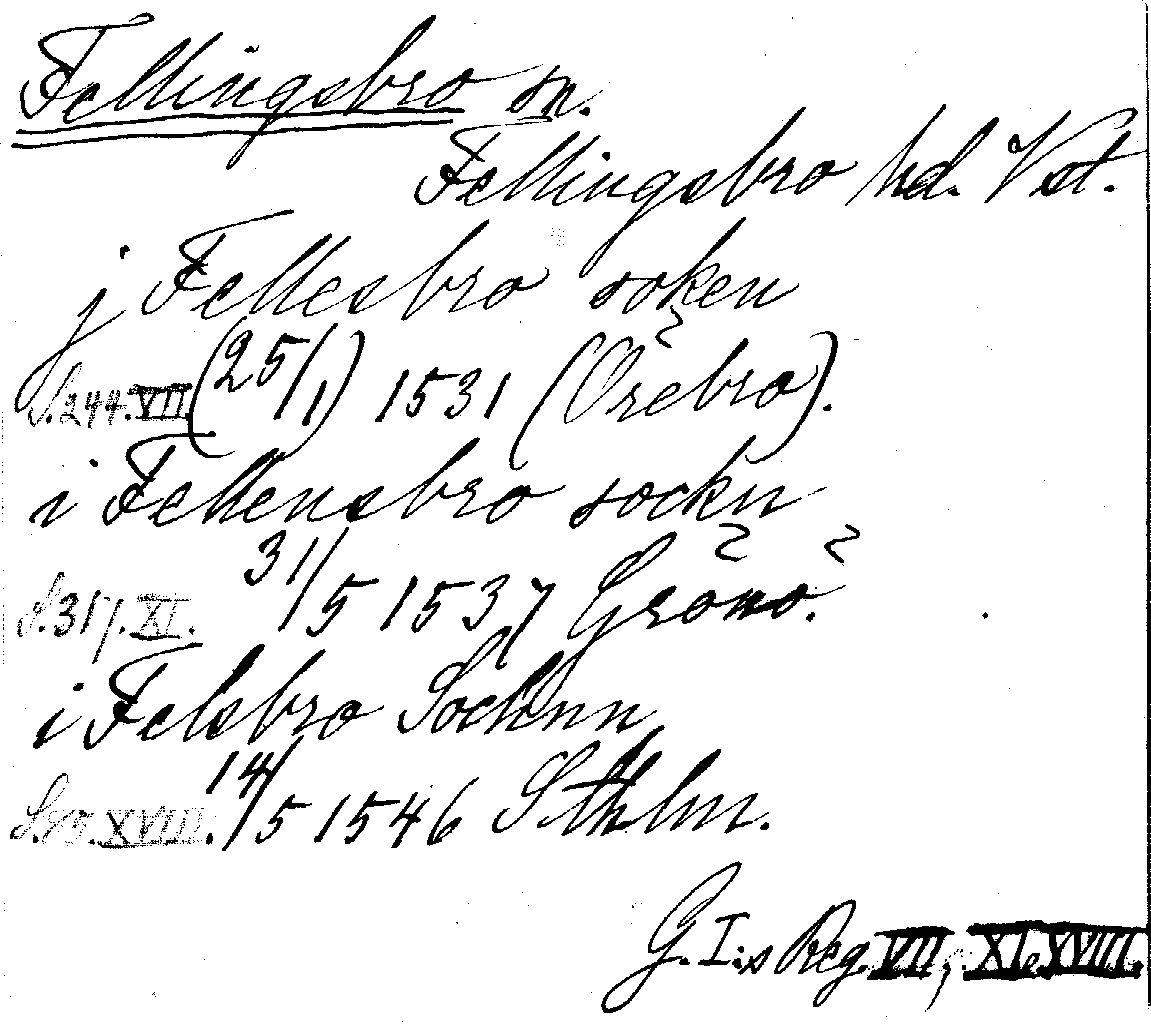 Fellingsbro sn.
Fellingsbro hd. Vst.
j Fellesbro soken
S. 244. VII. (25/1) 1531 (Örebro).
i Fellensbro sockn
S. 317. XI. 31/5 1537 Grönö.
i Felsbro Socknn
S. 85. XVIII. 14/5 1546 Sthlm.
G. I:s Reg. VII, XI, XVIII.